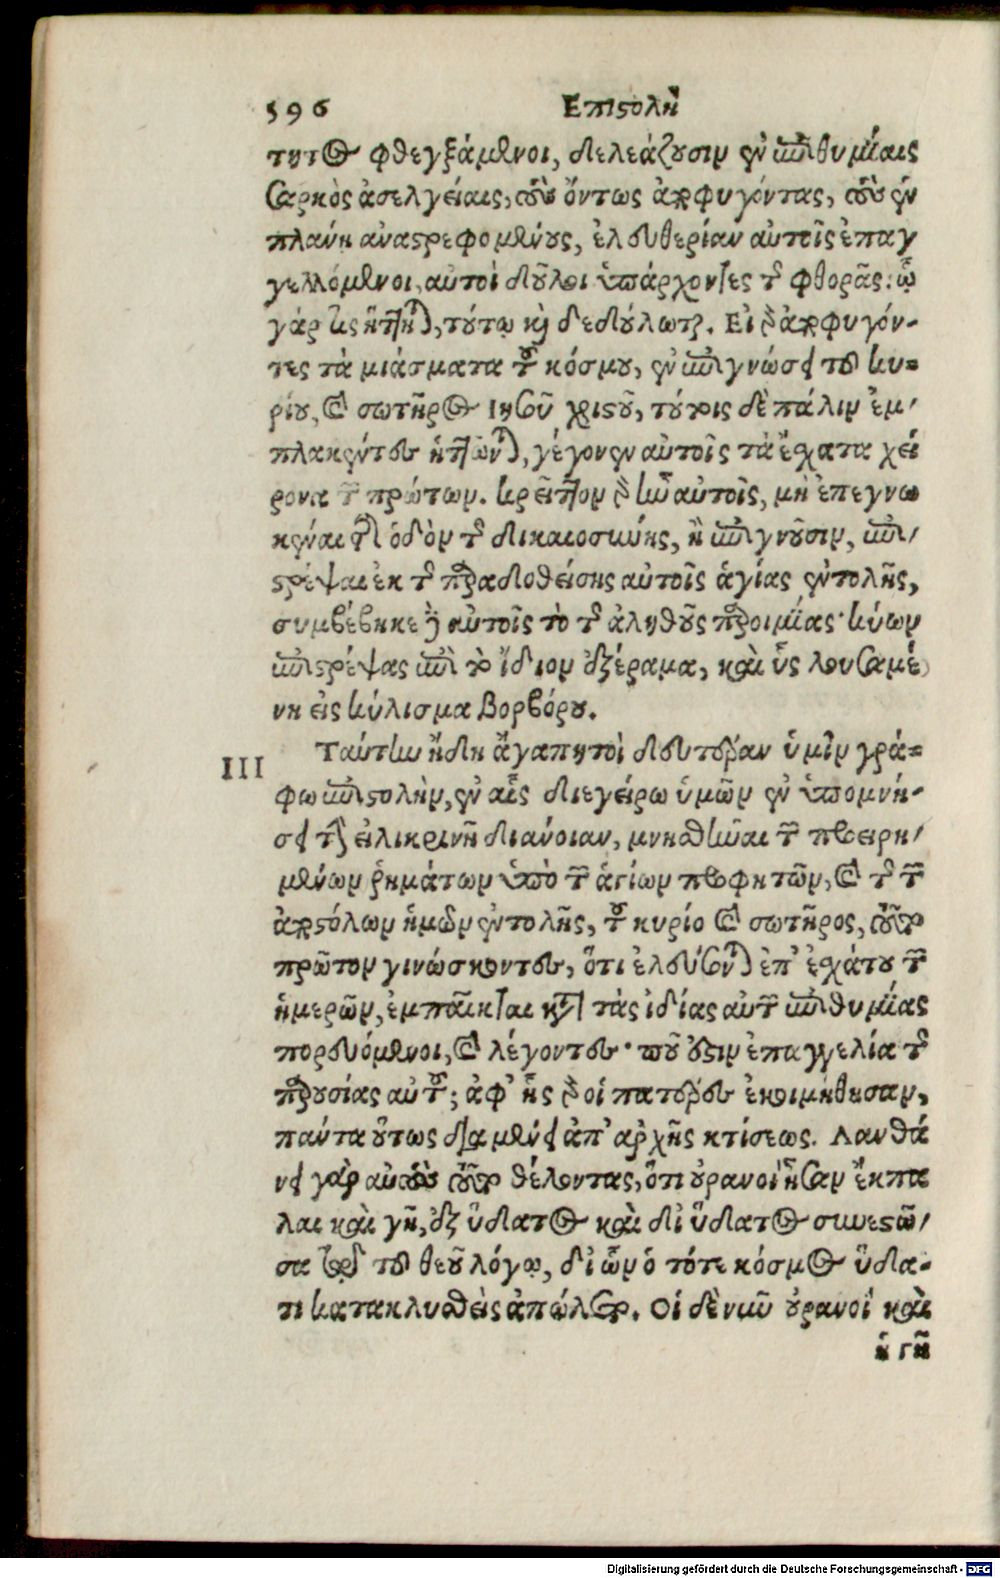 596 Επιστολὴ
τητος φθεγξάμενοι, δελεάζουσιν ἐν ἐπιθυμίαις
σαρκὸς ἀσελγείαις, τοὺς ὄντως ἀποφυγόντας, τοὺς ἐν
πλάνῃ ἀναστρεφομένους, ἐλευθερίαν αὐτοῖς ἐπαγ
γελλόμενοι, αὐτοὶ δοῦλοι ὑπάρχοντες τῆς φθορᾶς: ᾧ
γάρ τις ἥττηται, τούτῳ καὶ δεδούλωται. Εἰ γὰρ ἀποφυγόν-
τες τὰ μιάσματα τοῦ κόσμου, ἐν ἐπιγνώσει τοῦ κυ=
ρίου, καὶ σωτῆρος Ιησοῦ χριστοῦ, τούτοις δὲ πάλιν ἐμ/
πλακέντες ἡττῶνται, γέγονεν αὐτοῖς τὰ ἔσχατα χεί
ρονα τῶν πρώτων. κρεῖττον γὰρ ἦν αὐτοῖς, μὴ ἐπεγνω
κέναι τὴν ὁδὸν τῆς δικαιοσύνης, ἢ ἐπιγνοῦσιν, ἐπι/
στρέψαι ἐκ τῆς παραδοθείσης αὐτοῖς ἁγίας ἐντολῆς,
συμβέβηκε δὲ αὐτοῖς τὸ τῆς ἀληθοῦς παροιμίας· κύων
ἐπιστρέψας ἐπὶ τὸ ἴδιον ἐξέραμα, καὶ ὗς λουσαμέ
νη εἰς κύλισμα βορβόρου.
III Ταύτην ἤδη ἀγαπητοὶ δευτέραν ὑμῖν γρά=
φω ἐπιστολὴν, ἐν αἷς διεγείρω ὑμῶν ἐν ὑπομνή-
σει τὴν εἰλικρινῆ διάνοιαν, μνησθῆναι τῶν προειρη/
μένων ῥημάτων ὑπὸ τῶν ἁγίων προφητῶν, καὶ τῆς τῶν
ἀποστόλων ἡμῶν ἐντολῆς, τοῦ κυρίο καὶ σωτῆρος, τοῦτο
πρῶτον γινώσκοντες, ὅτι ἐλεύσονται ἐπ' ἐσχάτου τῶν
ἡμερῶν, ἐμπαῖκται κατὰ τὰς ἰδίας αὐτῶν ἐπιθυμίας
πορευόμενοι, καὶ λέγοντες· ποῦ ἐστιν ἐπαγγελία τῆς
παρουσίας αὐτοῦ; ἀφ' ἧς γὰρ οἱ πατέρες ἐκοιμήθησαν,
πάντα οὕτως διαμένει ἀπ' ἀρχῆς κτίσεως. Λανθά
νει γὰρ αὐτοὺς τοῦτο θέλοντας, ὅτι οὐρανοὶ ἦσαν ἔκπα
λαι καὶ γῆ, ἐξ ὕδατος καὶ δι' ὕδατος συνεστῶ/
σα τῷ τοῦ θεοῦ λόγῳ, δι' ὧν ὁ τότε κόσμος ὕδα-
τι κατακλυσθεὶς ἀπώλετο. Οἱ δὲ νῦν οὐρανοὶ καὶ
ἡ γῆ
Digitalisierung gefördert durch die Deutsche Forschungsgemeinschaft - DFG